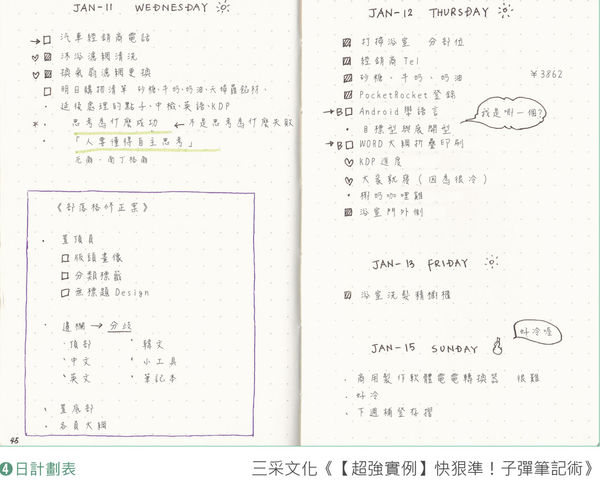 JAN-11 WEDNESDAY
汽車經銷商電話
沐浴濾網清洗
換氣扇濾網更換
明日購物清單 砂糖、牛奶、奶油、大掃除鋁材、
延後處理的點子、中檢、英語、KDP
思考為什麼成功 ← 不是思考為什麼失敗
「人要懂得自主思考」
《部落格修正案》
置頂頁
版頭畫像
分類標籤
無標題Design
邊欄 → 分歧
頂部
韓文
中文
小工具
英文
筆記本
置底部
各頁大綱
45
JAN-12 THURSDAY
打掃浴室 分部位
經銷商Tel
砂糖、牛奶、奶油 ¥3862
PocketRocket登錄
B Android學語言
我是哪一個?
目標型與展開型
B WORD大綱折疊印刷
KDP進度
大衆就寢(因為很冷)
樹奶咖哩雞
浴室門外側
JAN-13 FRIDAY
浴室洗髮精櫥櫃
JAN-15 SUNDAY
好冷喔
商用製作軟體電電轉換器 很難
好冷
下週補登存摺
4日計劃表
三采文化《【超強實例】快狠準！子彈筆記術》